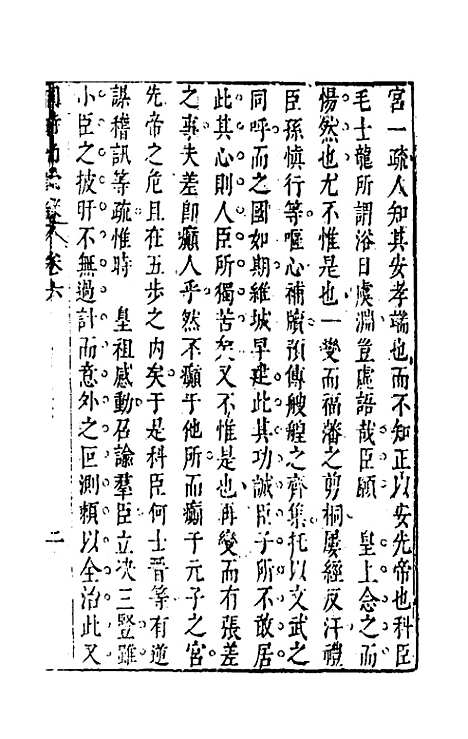 宮一疏人知其安孝端也而不知正以安先帝也科臣
毛士龍所謂浴日虞淵豈虛語哉臣願　皇上念之而
惕然也尤不惟是也一變而福藩之剪桐屢經反汗禮
臣孫慎行等嘔心補牘預傳艘艎之齊集托以文武之
同呼而之國如期維城早建此其功誠臣子所不敢居
此其心則人臣所獨苦矣又不惟是也再變而有張差
之事夫差卽癲人乎然不癲于他所而癲于元子之宮
先帝之危且在五步之內矣于是科臣何士晉等有逆
謀稽訊等疏惟時　皇祖感動召諭羣臣立決三豎雖
小臣之披肝不無過計而意外之叵測賴以全治此又
卷六
二